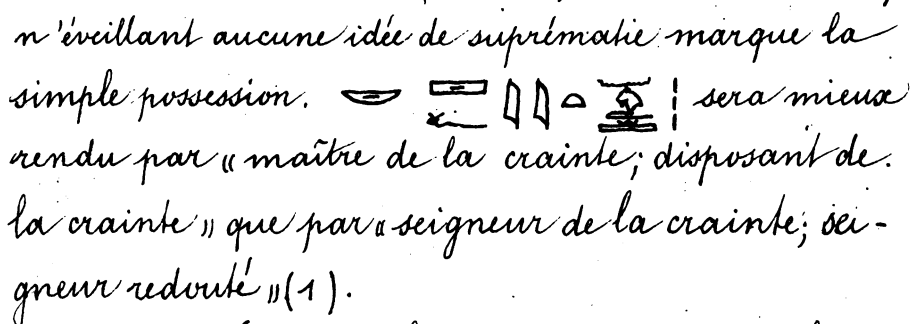 n'éveillant aucune idée de suprématie marque la
simple possession. sera mieux
rendu par « maître de la crainte; disposant de.
la crainte » que par « seigneur de la crainte; sei-
gneur redouté » (1).